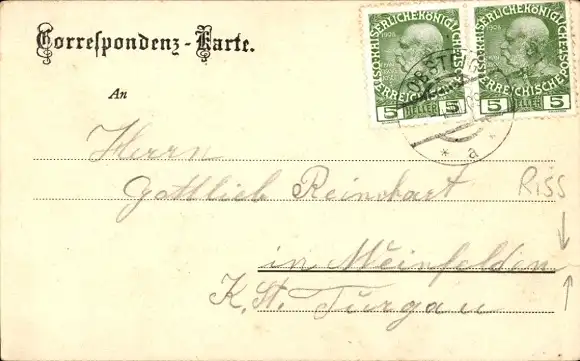 Correspondenz-Karte.
KAISERLICHE KÖNIGLICHE ÖSTERREICHISCHE POST
1908
5 HELLER 5
KAISERLICHE KÖNIGLICHE ÖSTERREICHISCHE POST
1908
5 HELLER 5
* a *
An
Herrn
Gottlieb Reinhart
RiSS
in Weinfelden
K. St. Turgau